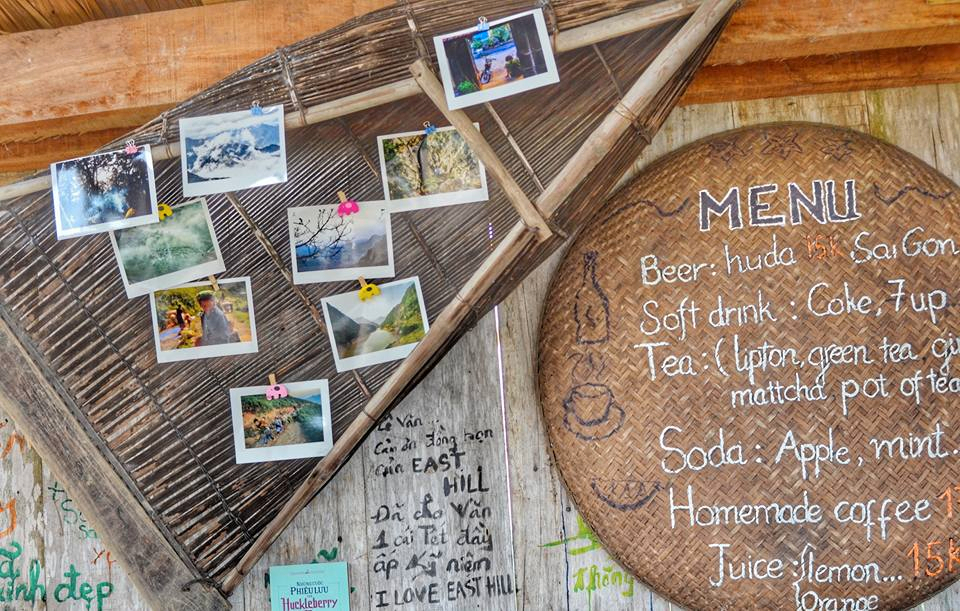 MENU
Beer: huda 15K Sai Gon
Soft drink : Coke, 7up
Tea: ( lipton, green tea
mattcha pot of tea
Soda : Apple, mint.
Homemade coffee
Juice : lemon... 15K
Orange
Lê Vân
Cảm ơn đồng bọn
của EAST
HILL
Đã cho Vân
1 cái Tết đầy
ắp kỷ niệm
I LOVE EAST HILL
NHỮNG CUỘC
PHIÊU LƯU
Huckleberry
đẹp
thông